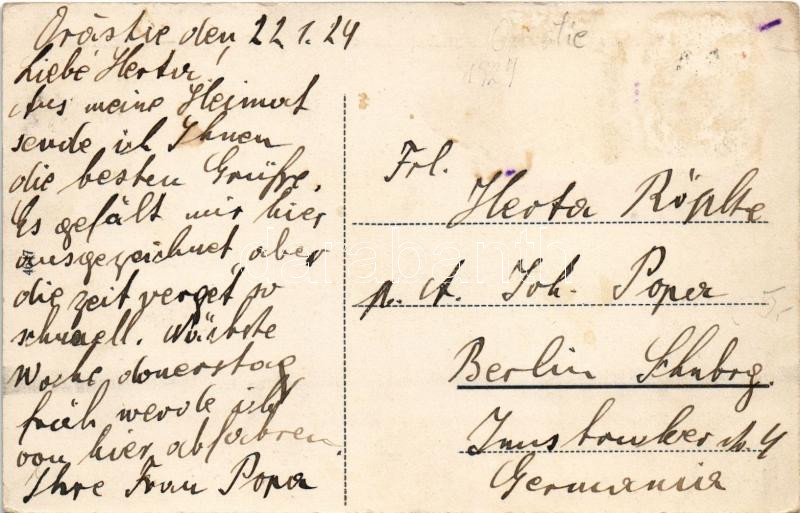 Orăstie den 22.1.24
Liebe Herta!
Aus meine Heimat
sende ich Ihnen
die besten Grüße.
Es gefält mir hier
ausgezeichnet, aber
die zeit verget so
schnell. Nächste
Woche donerstag
früh werde ich
von hier abfahren.
Ihre Frau Popa
1924
Frl.
Herta Röplke
p. A. Joh. Popa
Berlin Schnbrg.
Innsbrucker 4
Germania
darabanth